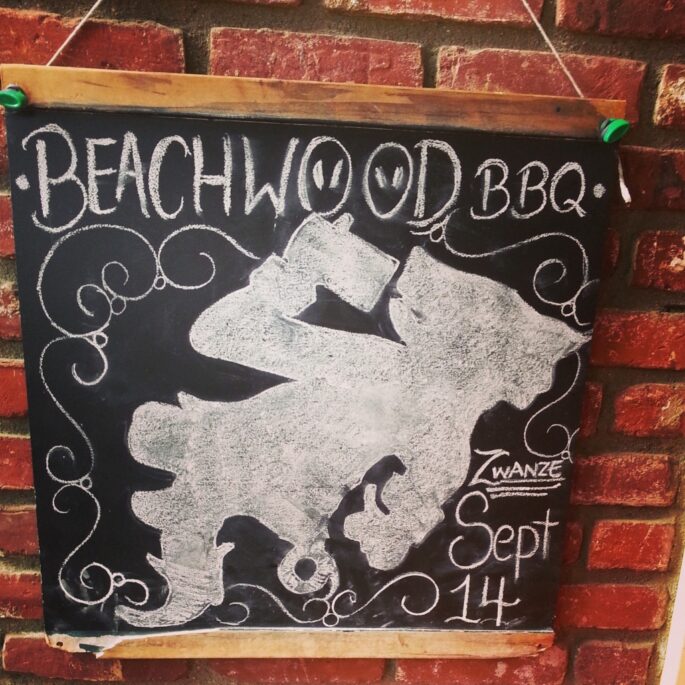 BEACHWOOD BBQ
ZWANZE
Sept
14